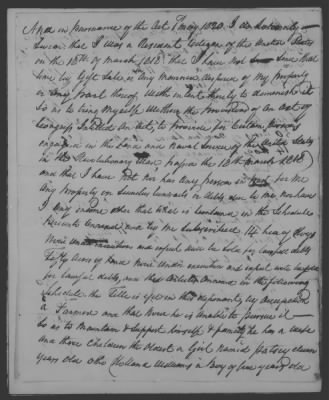 And in pursuance of the Act 1st May 1820. I do solemnly
Swear that I was a Resident Citizen of the United States
on the 18th of March 1818 that I have not Since that
time by Gift Sale or in any Manner disposed of My Property
or any part thereof, with intent thereby to diminish it
So as to bring Myself Within the Provisions of an act of
Congress Intitled An Act, to Provide for Certain persons
engaged in the Land and Naval Service of the United States
in the Revolutionary War passed the 18th March 1818
and that I have Not Nor has any person in for Me
Any Property or Securities Contracts or debts due to me nor have
I any income other than What is Contained in the Schedule
hereunto annexed and by Me Subscribed 14 head of Hogs
None and will be Sold for lawful debts
fifty Acres of Land None under execution and
for lawful debts, and the in the following
Schedule the Title is yet in this deponent by Occupation
a Farmer and that None he is Unable to pursue it
So as to Maintain & Support himself & family he has a wife
and three Children the Oldest a Girl Named Patsey eleven
years old also Holland Williams a Boy of five years old